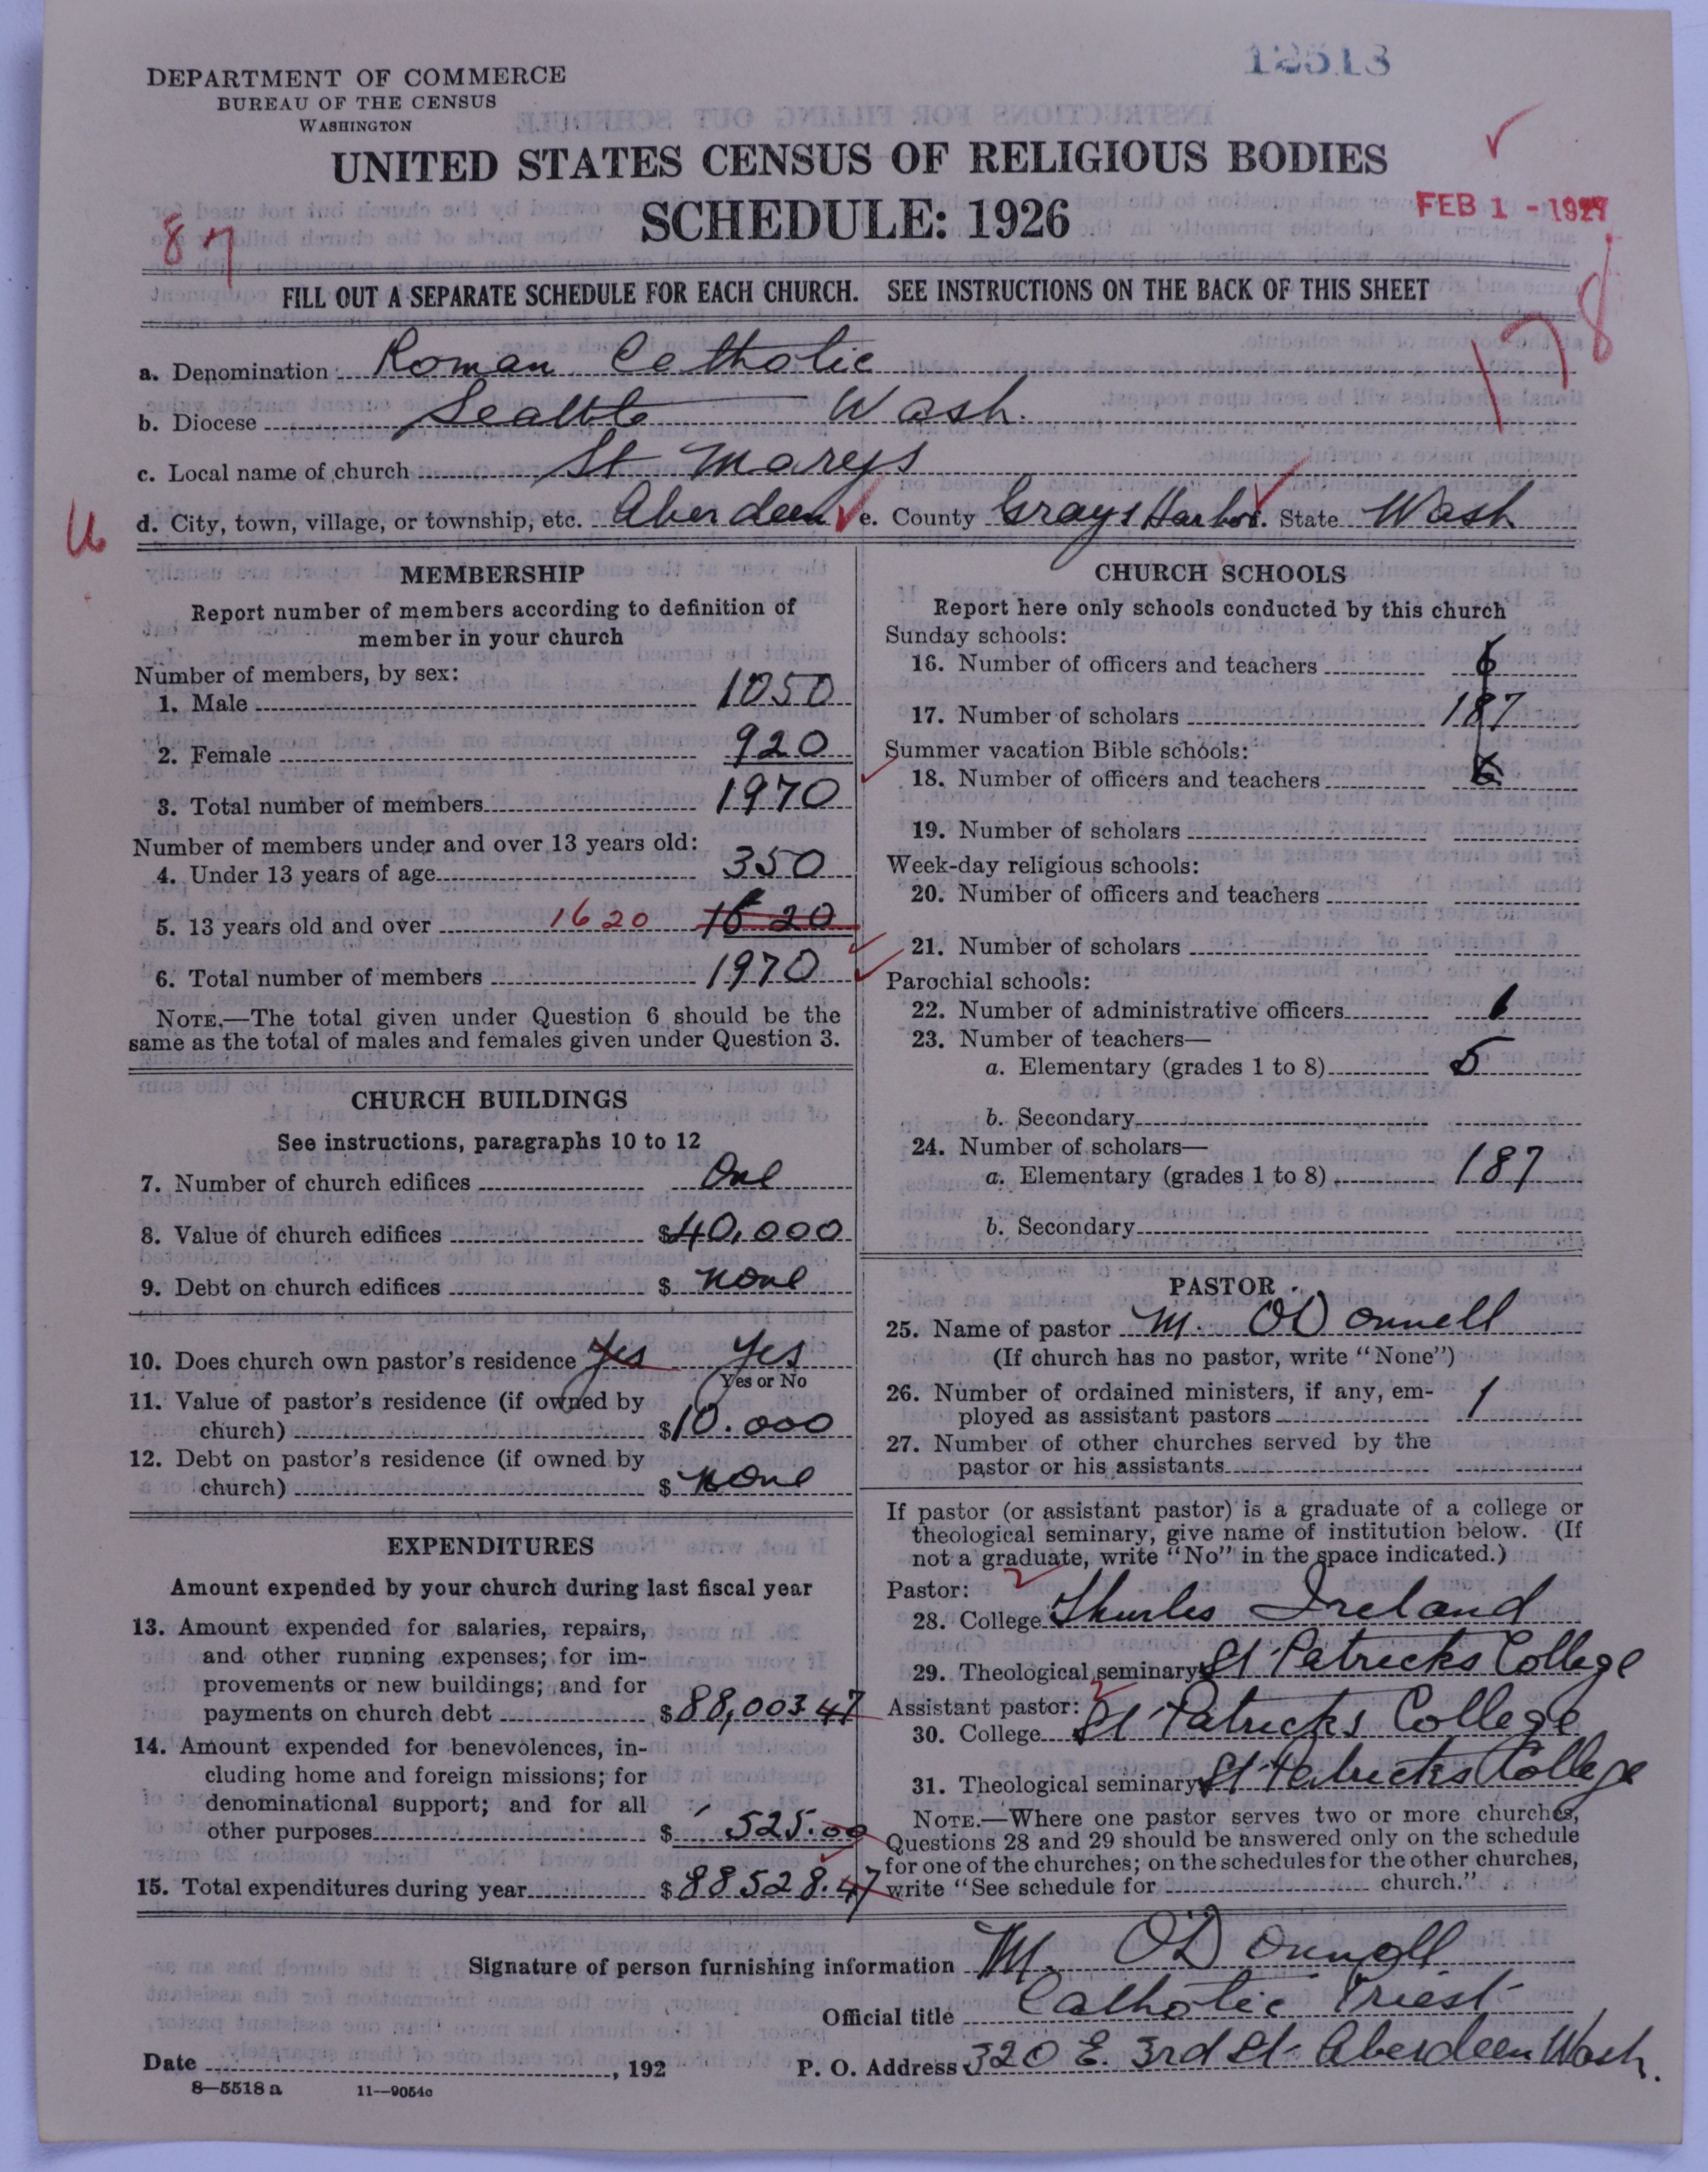 12513
DEPARTMENT OF COMMERCE
BUREAU OF THE CENSUS
WASHINGTON
UNITED STATES CENSUS OF RELIGIOUS BODIES
SCHEDULE: 1926
FEB 1 - 1927
87
178
FILL OUT A SEPARATE SCHEDULE FOR EACH CHURCH. SEE INSTRUCTIONS ON THE BACK OF THIS SHEET
a. Denomination Roman Catholic
b. Diocese Seattle Wash.
c. Local name of church St Marys
d. City, town, village, or township, etc. Aberdeen e. County Grays Harbor. State Wash
MEMBERSHIP
Report number of members according to definition of
member in your church
Number of members, by sex:
1. Male 1050
2. Female 920
3. Total number of members 1970
Number of members under and over 13 years old:
4. Under 13 years of age 350
5. 13 years old and over 1620 1620
6. Total number of members 1970
NOTE.—The total given under Question 6 should be the
same as the total of males and females given under Question 3.
CHURCH BUILDINGS
See instructions, paragraphs 10 to 12
7. Number of church edifices One
8. Value of church edifices $40,000
9. Debt on church edifices $ none
10. Does church own pastor's residence Yes Yes
Yes or No
11. Value of pastor's residence (if owned by
church) $10.000
12. Debt on pastor's residence (if owned by
church) $ none
EXPENDITURES
Amount expended by your church during last fiscal year
13. Amount expended for salaries, repairs,
and other running expenses; for im-
provements or new buildings; and for
payments on church debt $88,003 47
14. Amount expended for benevolences, in-
cluding home and foreign missions; for
denominational support; and for all
other purposes $ 525.00
15. Total expenditures during year $88528.47
CHURCH SCHOOLS
Report here only schools conducted by this church
Sunday schools:
16. Number of officers and teachers 6
17. Number of scholars 187
Summer vacation Bible schools:
18. Number of officers and teachers
19. Number of scholars
Week-day religious schools:
20. Number of officers and teachers
21. Number of scholars
Parochial schools:
22. Number of administrative officers 1
23. Number of teachers—
a. Elementary (grades 1 to 8) 5
b. Secondary
24. Number of scholars—
a. Elementary (grades 1 to 8) 187
b. Secondary
PASTOR
25. Name of pastor M. O'Donnell
(If church has no pastor, write "None")
26. Number of ordained ministers, if any, em-
ployed as assistant pastors 1
27. Number of other churches served by the
pastor or his assistants
If pastor (or assistant pastor) is a graduate of a college or
theological seminary, give name of institution below. (If
not a graduate, write "No" in the space indicated.)
Pastor:
28. College Thurles Ireland
29. Theological seminary St Patricks College
Assistant pastor:
30. College St Patricks College
31. Theological seminary St Patricks College
NOTE.—Where one pastor serves two or more churches,
Questions 28 and 29 should be answered only on the schedule
for one of the churches; on the schedules for the other churches,
write "See schedule for church."
Signature of person furnishing information M. O'Donnell
Official title Catholic Priest
Date , 192 P. O. Address 320 E. 3rd St. Aberdeen Wash.
8—5518 a 11—9054c